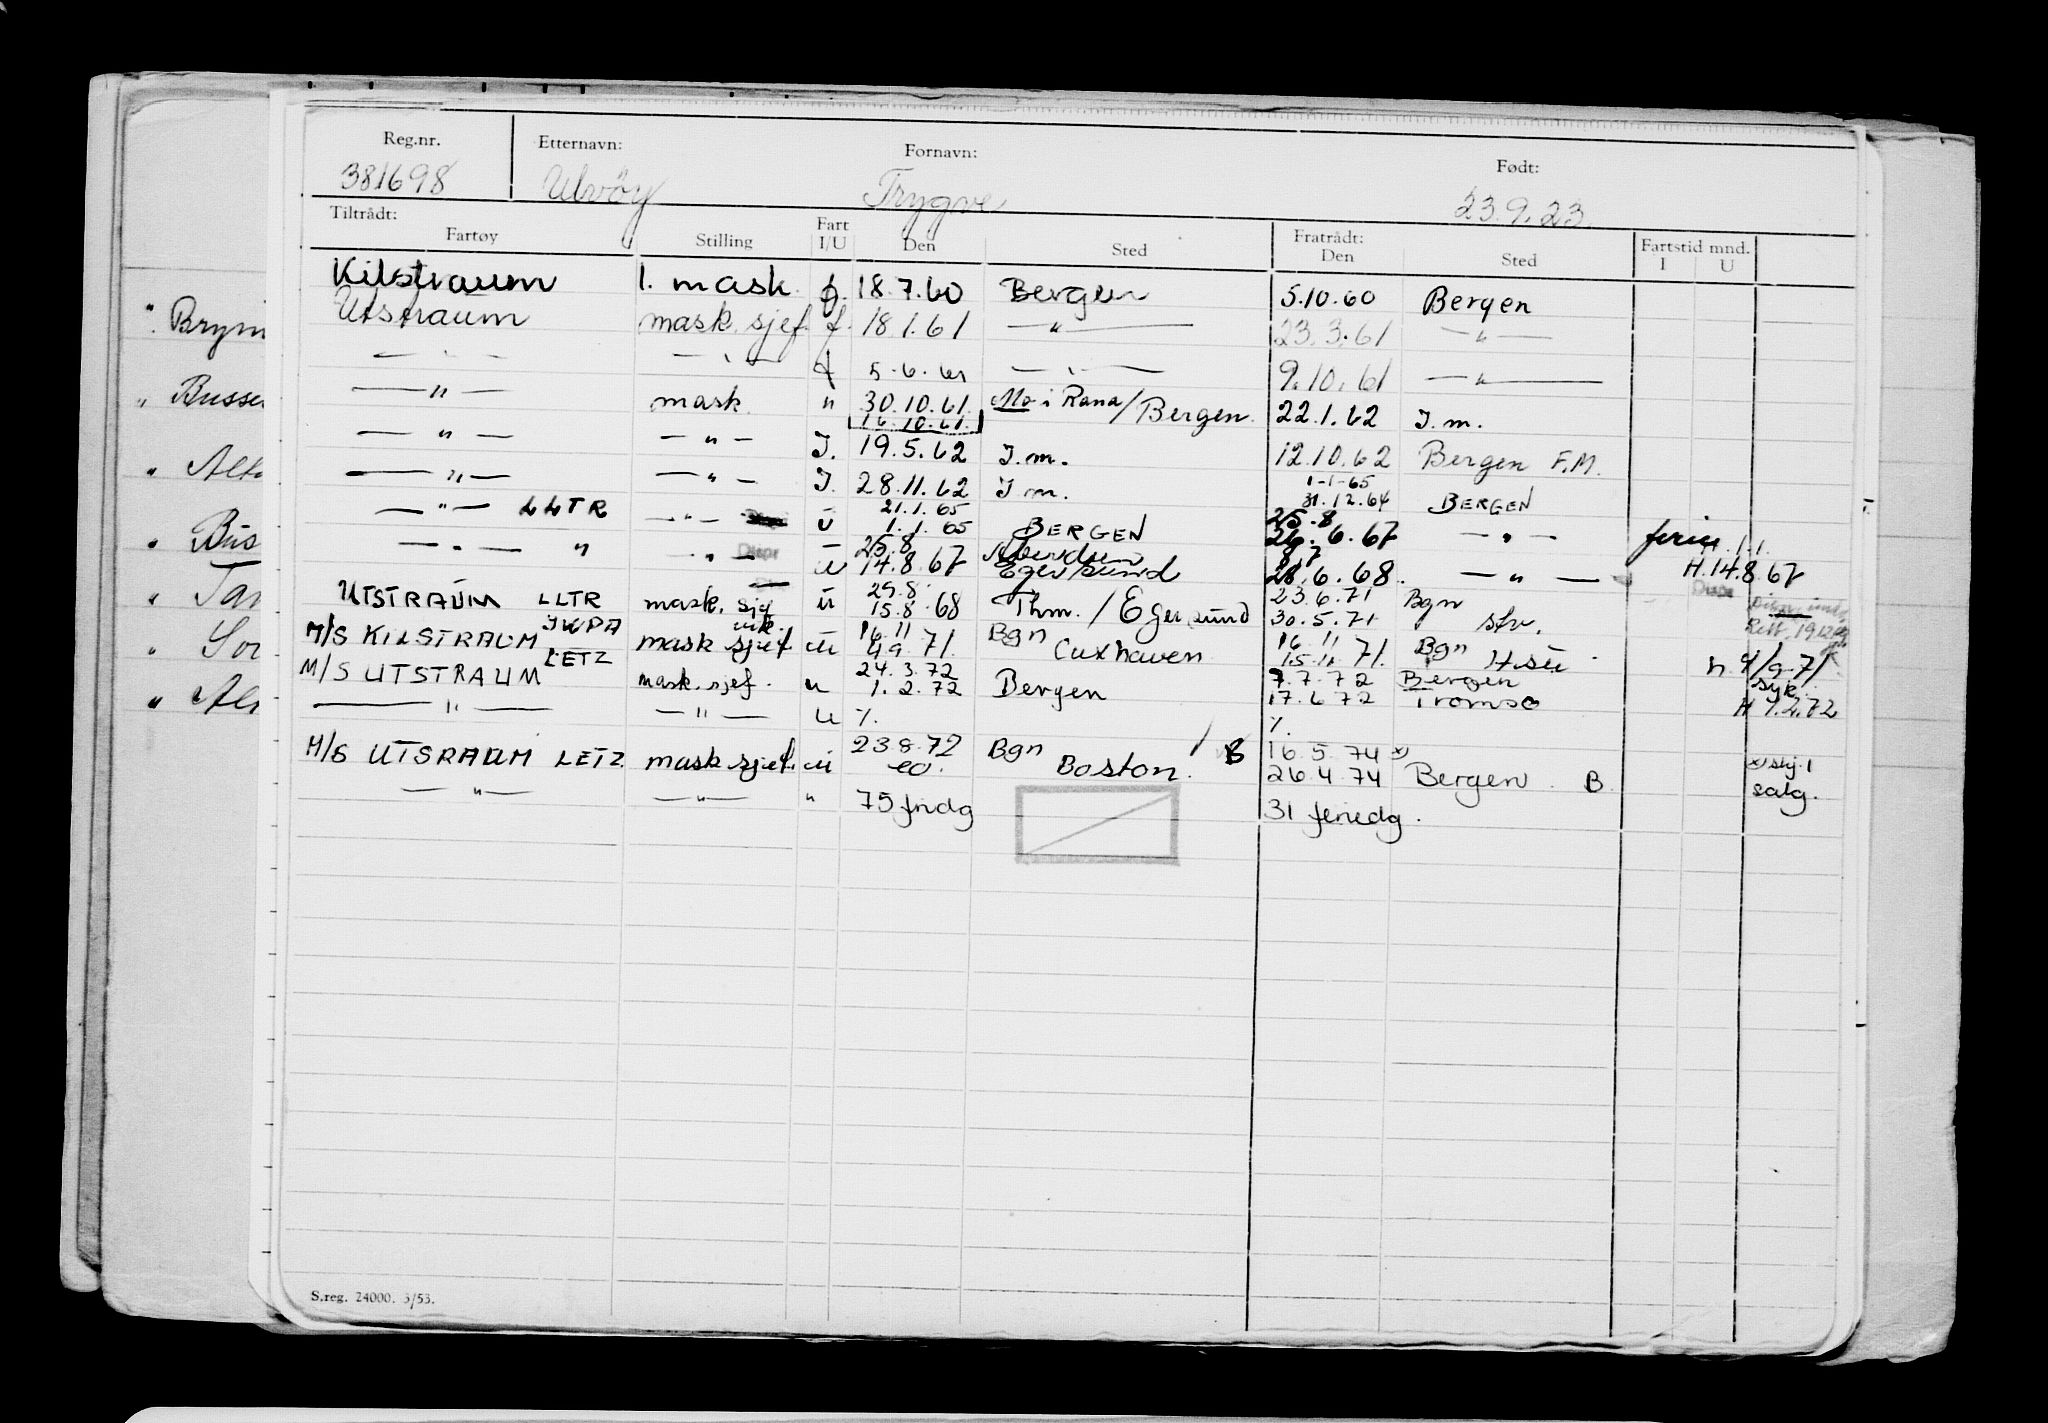 Reg.nr. Etternavn: Fornavn: Født:
381698 Ulvöy Trygve 23.9.23
Tiltrådt: Fratrådt:
Fartøy Stilling Fart I/U Den Sted Den Sted Fartstid mnd. I U
Kilstraum 1. mask. f. 18.7.60 Bergen 5.10.60 Bergen
Utstraum mask. sjef. f. 18.1.61 — " — 23.3.61 — " —
— " — — " — f 5.6.61 — " — 9.10.61 — " —
— " — mask. " 30.10.61. Mo i Rana/Bergen. 22.1.62 I.m.
16.10.61.
— " — — " — I. 19.5.62 I.m. 12.10.62 Bergen F.M.
— " — — " — I. 28.11.62 I.m. 1-1-65
31.12.64 BERGEN
— " — LLTR — " — U 21.1.65
1.1.65 BERGEN 25.8
26.6.67 — " — ferie H.1.1.
— " — " — " — Disp U 25.8
14.8.67 Egersund 8.7
28.6.68. — " — H.14.8.67
Disp
UTSTRAUM LLTR mask. sjef U 29.8
15.8.68 Thm. / Egersund 23.6.71 Bgn
30.5.71 stv.
M/S KILSTRAUM JWPA mask sjef vik U 16.11
4.9.71. Bgn Cuxhaven 16.11
15.11.71. Bgn H.sü h. 4/9-71
M/S UTSTRAUM LETZ mask. sjef. u 24.3.72
1.2.72 Bergen 7.7.72 Bergen
17.6.72 Tromsø syk.
H 1.2.72
— " — — " — U %. %.
M/S UTSRAUM LETZ mask sjef. U 23.8.72 Bgn
eo. Boston. B 16.5.74 x)
26.4.74 Bergen. B x) skj. 1
salg.
— " — — " — " 75 fridg 31 feriedg.
" Brym
" Busse
" Alta
" Bus
" Tan
" Sor
" Alt
S.reg. 24000. 3/53.